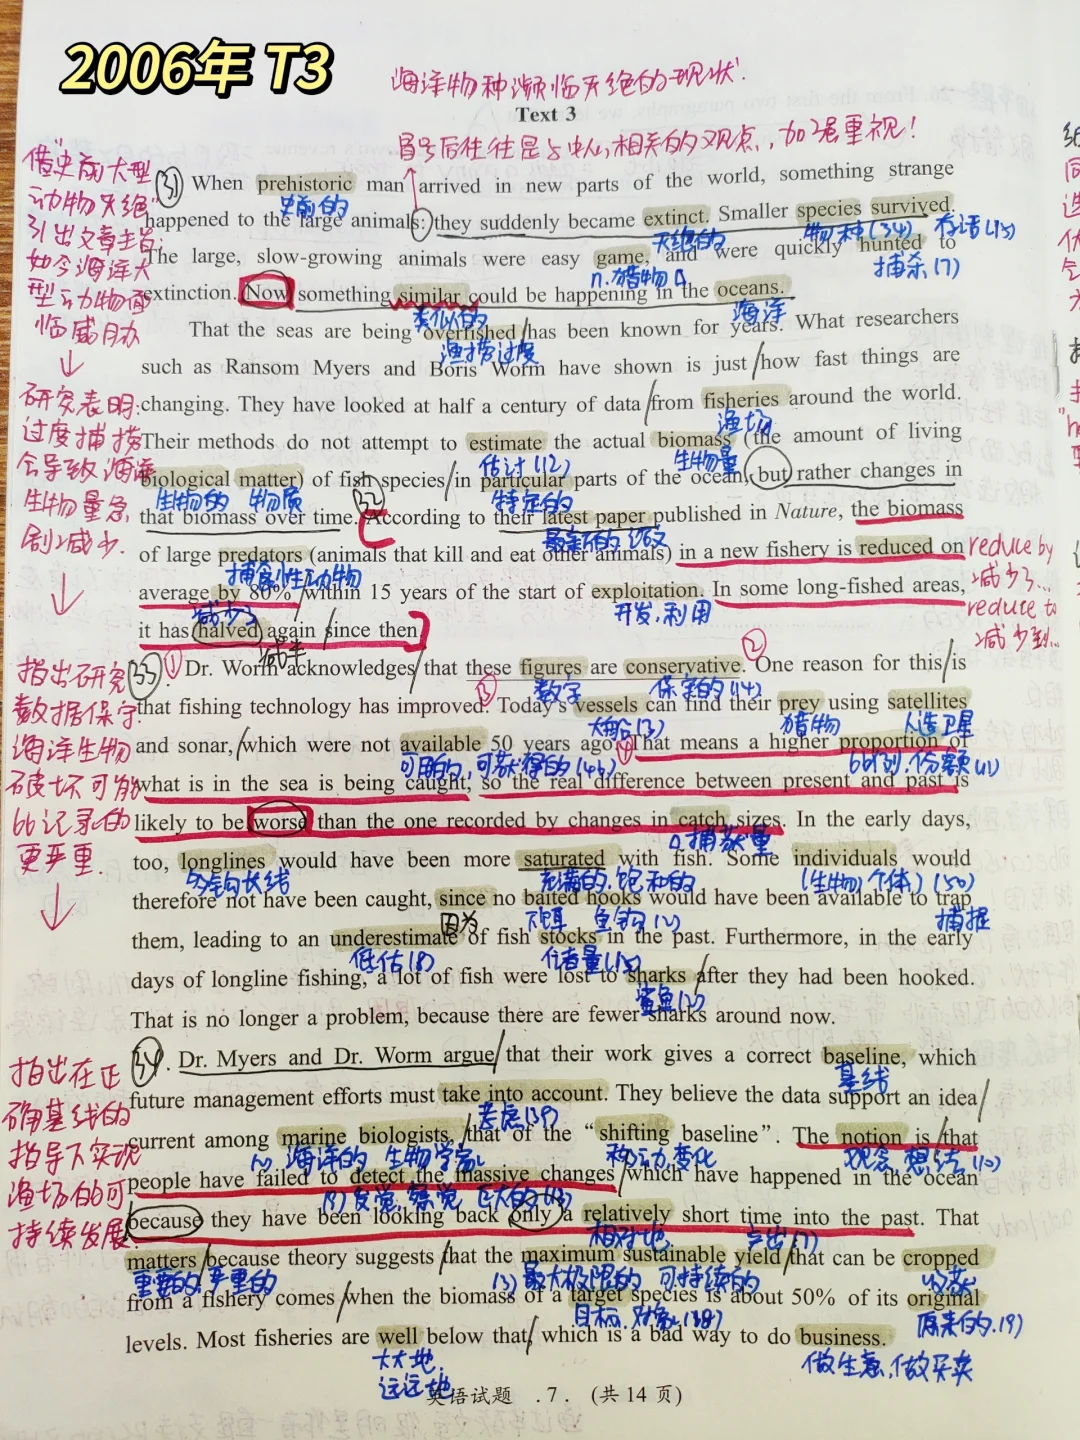 2006年 T3
海洋物种濒临灭绝的现状.
Text 3
冒号后往往是与中心相关的观点，加强重视！
借"史前大型
动物灭绝"
引出文章主旨:
如今海洋大
型动物面
临威胁
↓
研究表明:
过度捕捞
会导致海洋
生物量急
剧减少.
↓
指出研究
数据保守
海洋生物
破坏可能
比记录的
更严重.
↓
指出在正
确基线的
指导下实现
渔场的可
持续发展.
31 When prehistoric man arrived in new parts of the world, something strange
史前的
happened to the large animals: they suddenly became extinct. Smaller species survived.
灭绝的 物种(34) 存活(15)
The large, slow-growing animals were easy game, and were quickly hunted to
n.猎物 捕杀(7)
extinction. Now something similar could be happening in the oceans.
类似的 海洋
That the seas are being overfished has been known for years. What researchers
渔捞过度
such as Ransom Myers and Boris Worm have shown is just how fast things are
changing. They have looked at half a century of data from fisheries around the world.
渔场
Their methods do not attempt to estimate the actual biomass (the amount of living
估计(12) 生物量
biological matter) of fish species in particular parts of the ocean, but rather changes in
生物的 物质 特定的
that biomass over time. 32 According to their latest paper published in Nature, the biomass
最新的 论文
of large predators (animals that kill and eat other animals) in a new fishery is reduced on
捕食性动物
reduce by
减少了...
average by 80% within 15 years of the start of exploitation. In some long-fished areas,
减少了 开发,利用
reduce to
减少到...
it has halved again since then.
减半
33 ① Dr. Worm acknowledges that these figures are conservative. ② One reason for this is
数字 保守的(14)
that fishing technology has improved. ③ Today's vessels can find their prey using satellites
大船(3) 猎物 人造卫星
and sonar, which were not available 50 years ago. ④ That means a higher proportion of
可用的,可获得的(46) 比例,份额(11)
what is in the sea is being caught, so the real difference between present and past is
likely to be worse than the one recorded by changes in catch sizes. In the early days,
捕获量
too, longlines would have been more saturated with fish. Some individuals would
多钩长线 充满的,饱和的 (生物)个体)(50)
therefore not have been caught, since no baited hooks would have been available to trap
因为 下饵 鱼钩 捕捉
them, leading to an underestimate of fish stocks in the past. Furthermore, in the early
低估(8) 储量(15)
days of longline fishing, a lot of fish were lost to sharks after they had been hooked.
鲨鱼
That is no longer a problem, because there are fewer sharks around now.
34 Dr. Myers and Dr. Worm argue that their work gives a correct baseline, which
基线
future management efforts must take into account. They believe the data support an idea
考虑(39)
current among marine biologists, that of the "shifting baseline". The notion is that
海洋的 生物学家 移动,变化 观念 想法(10)
people have failed to detect the massive changes which have happened in the ocean
发觉,察觉 巨大的
because they have been looking back only a relatively short time into the past. That
相对地
matters because theory suggests that the maximum sustainable yield that can be cropped
重要的,严重的 最大极限的 可持续的 产出(7) 收获
from a fishery comes when the biomass of a target species is about 50% of its original
目标,对象(38) 原来的(19)
levels. Most fisheries are well below that, which is a bad way to do business.
大大地, 做生意,做买卖
远远地
英语试题 .7. (共 14 页)